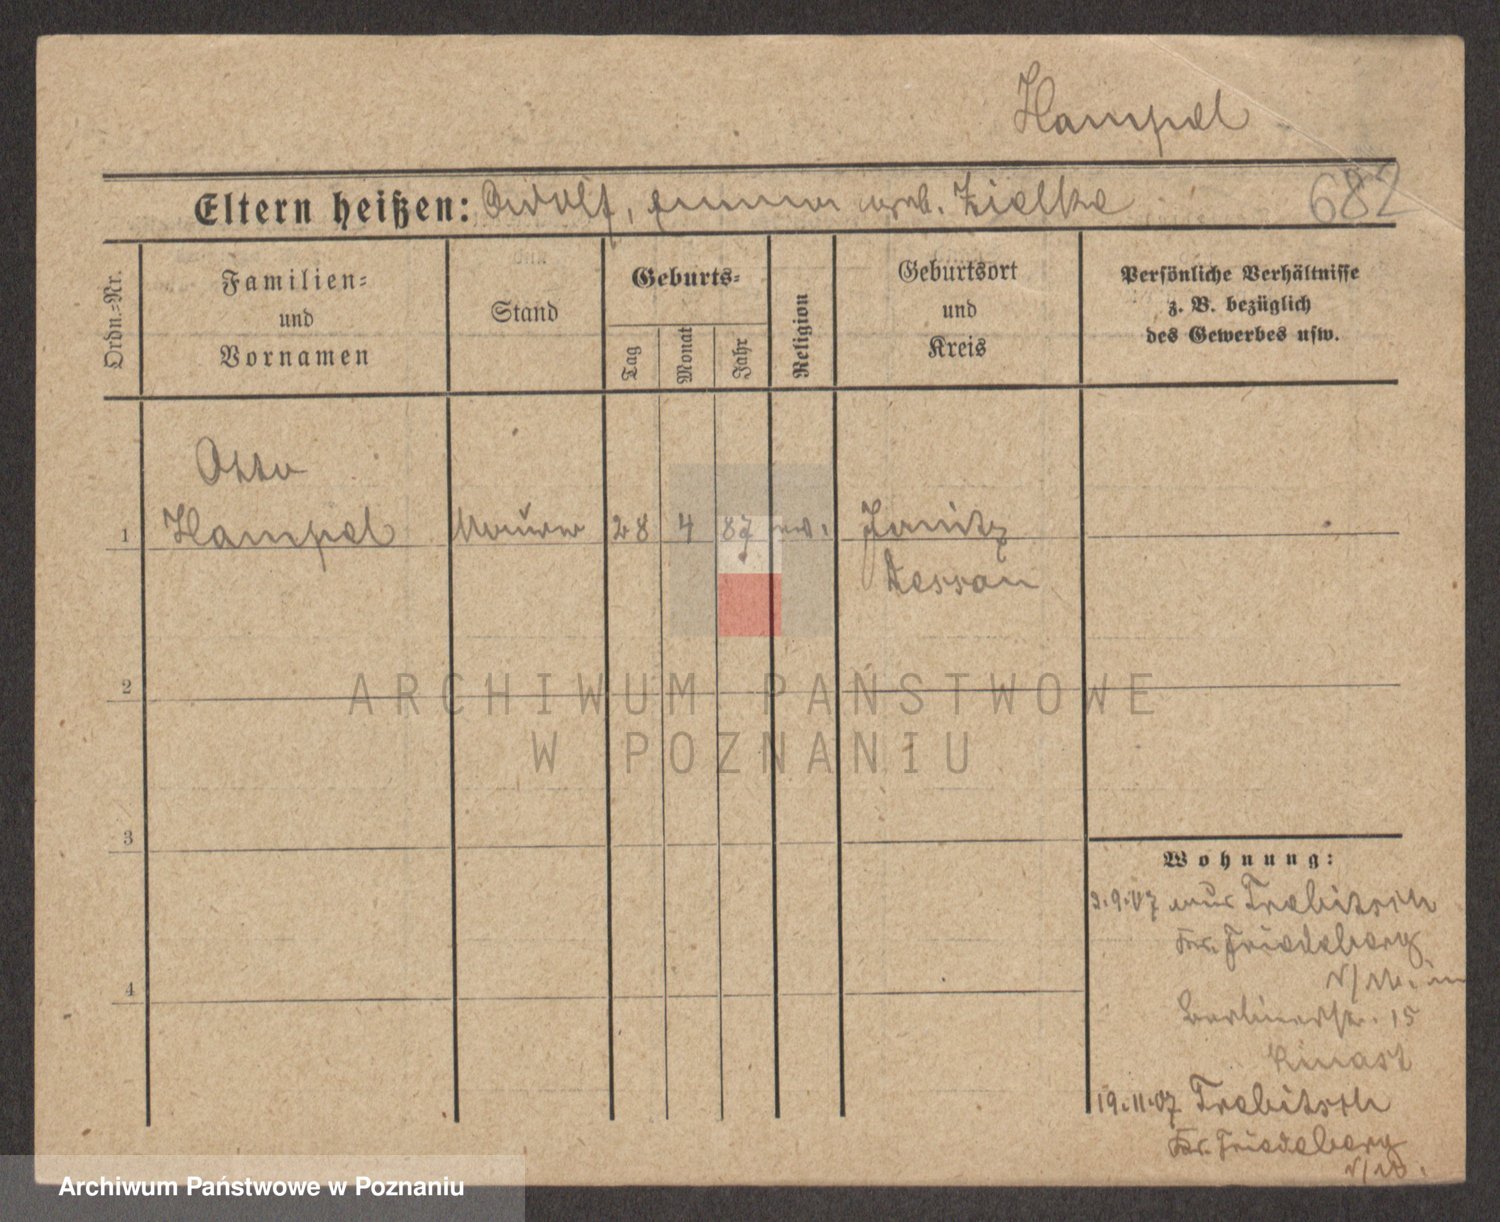 Hampel
Eltern heißen: Rudolf, Emma geb. Zielke
682
Ordn.-Nr.
Familien-
und
Vornamen
Stand
Geburts-
Tag
Monat
Jahr
Religion
Geburtsort
und
Kreis
Persönliche Verhältnisse
z. B. bezüglich
des Gewerbes usw.
Otto
1 Hampel Maurer 28 4 87 ev. Jonitz
Dessau
2
ARCHIWUM PAŃSTWOWE
W POZNANIU
3
Wohnung:
3.9.07 aus Trebitsch
Kr. Friedeberg
4
N/M. in
Berlinerstr. 15
19.11.07 Trebitsch
Kr. Friedeberg
N/M.
Archiwum Państwowe w Poznaniu